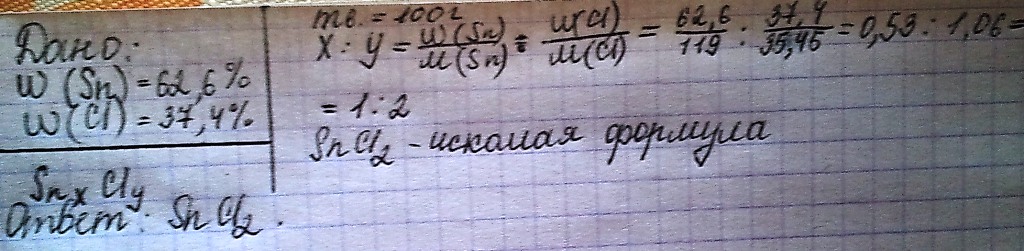 Дано:
W (Sn) = 62,6%
W (Cl) = 37,4%
Sn x Cl y
Ответ: SnCl2.
mв. = 100г
x : y = W(Sn)/M(Sn) : W(Cl)/M(Cl) = 62,6/119 : 37,4/35,45 = 0,53 : 1,06 =
= 1:2
SnCl2 - искомая формула